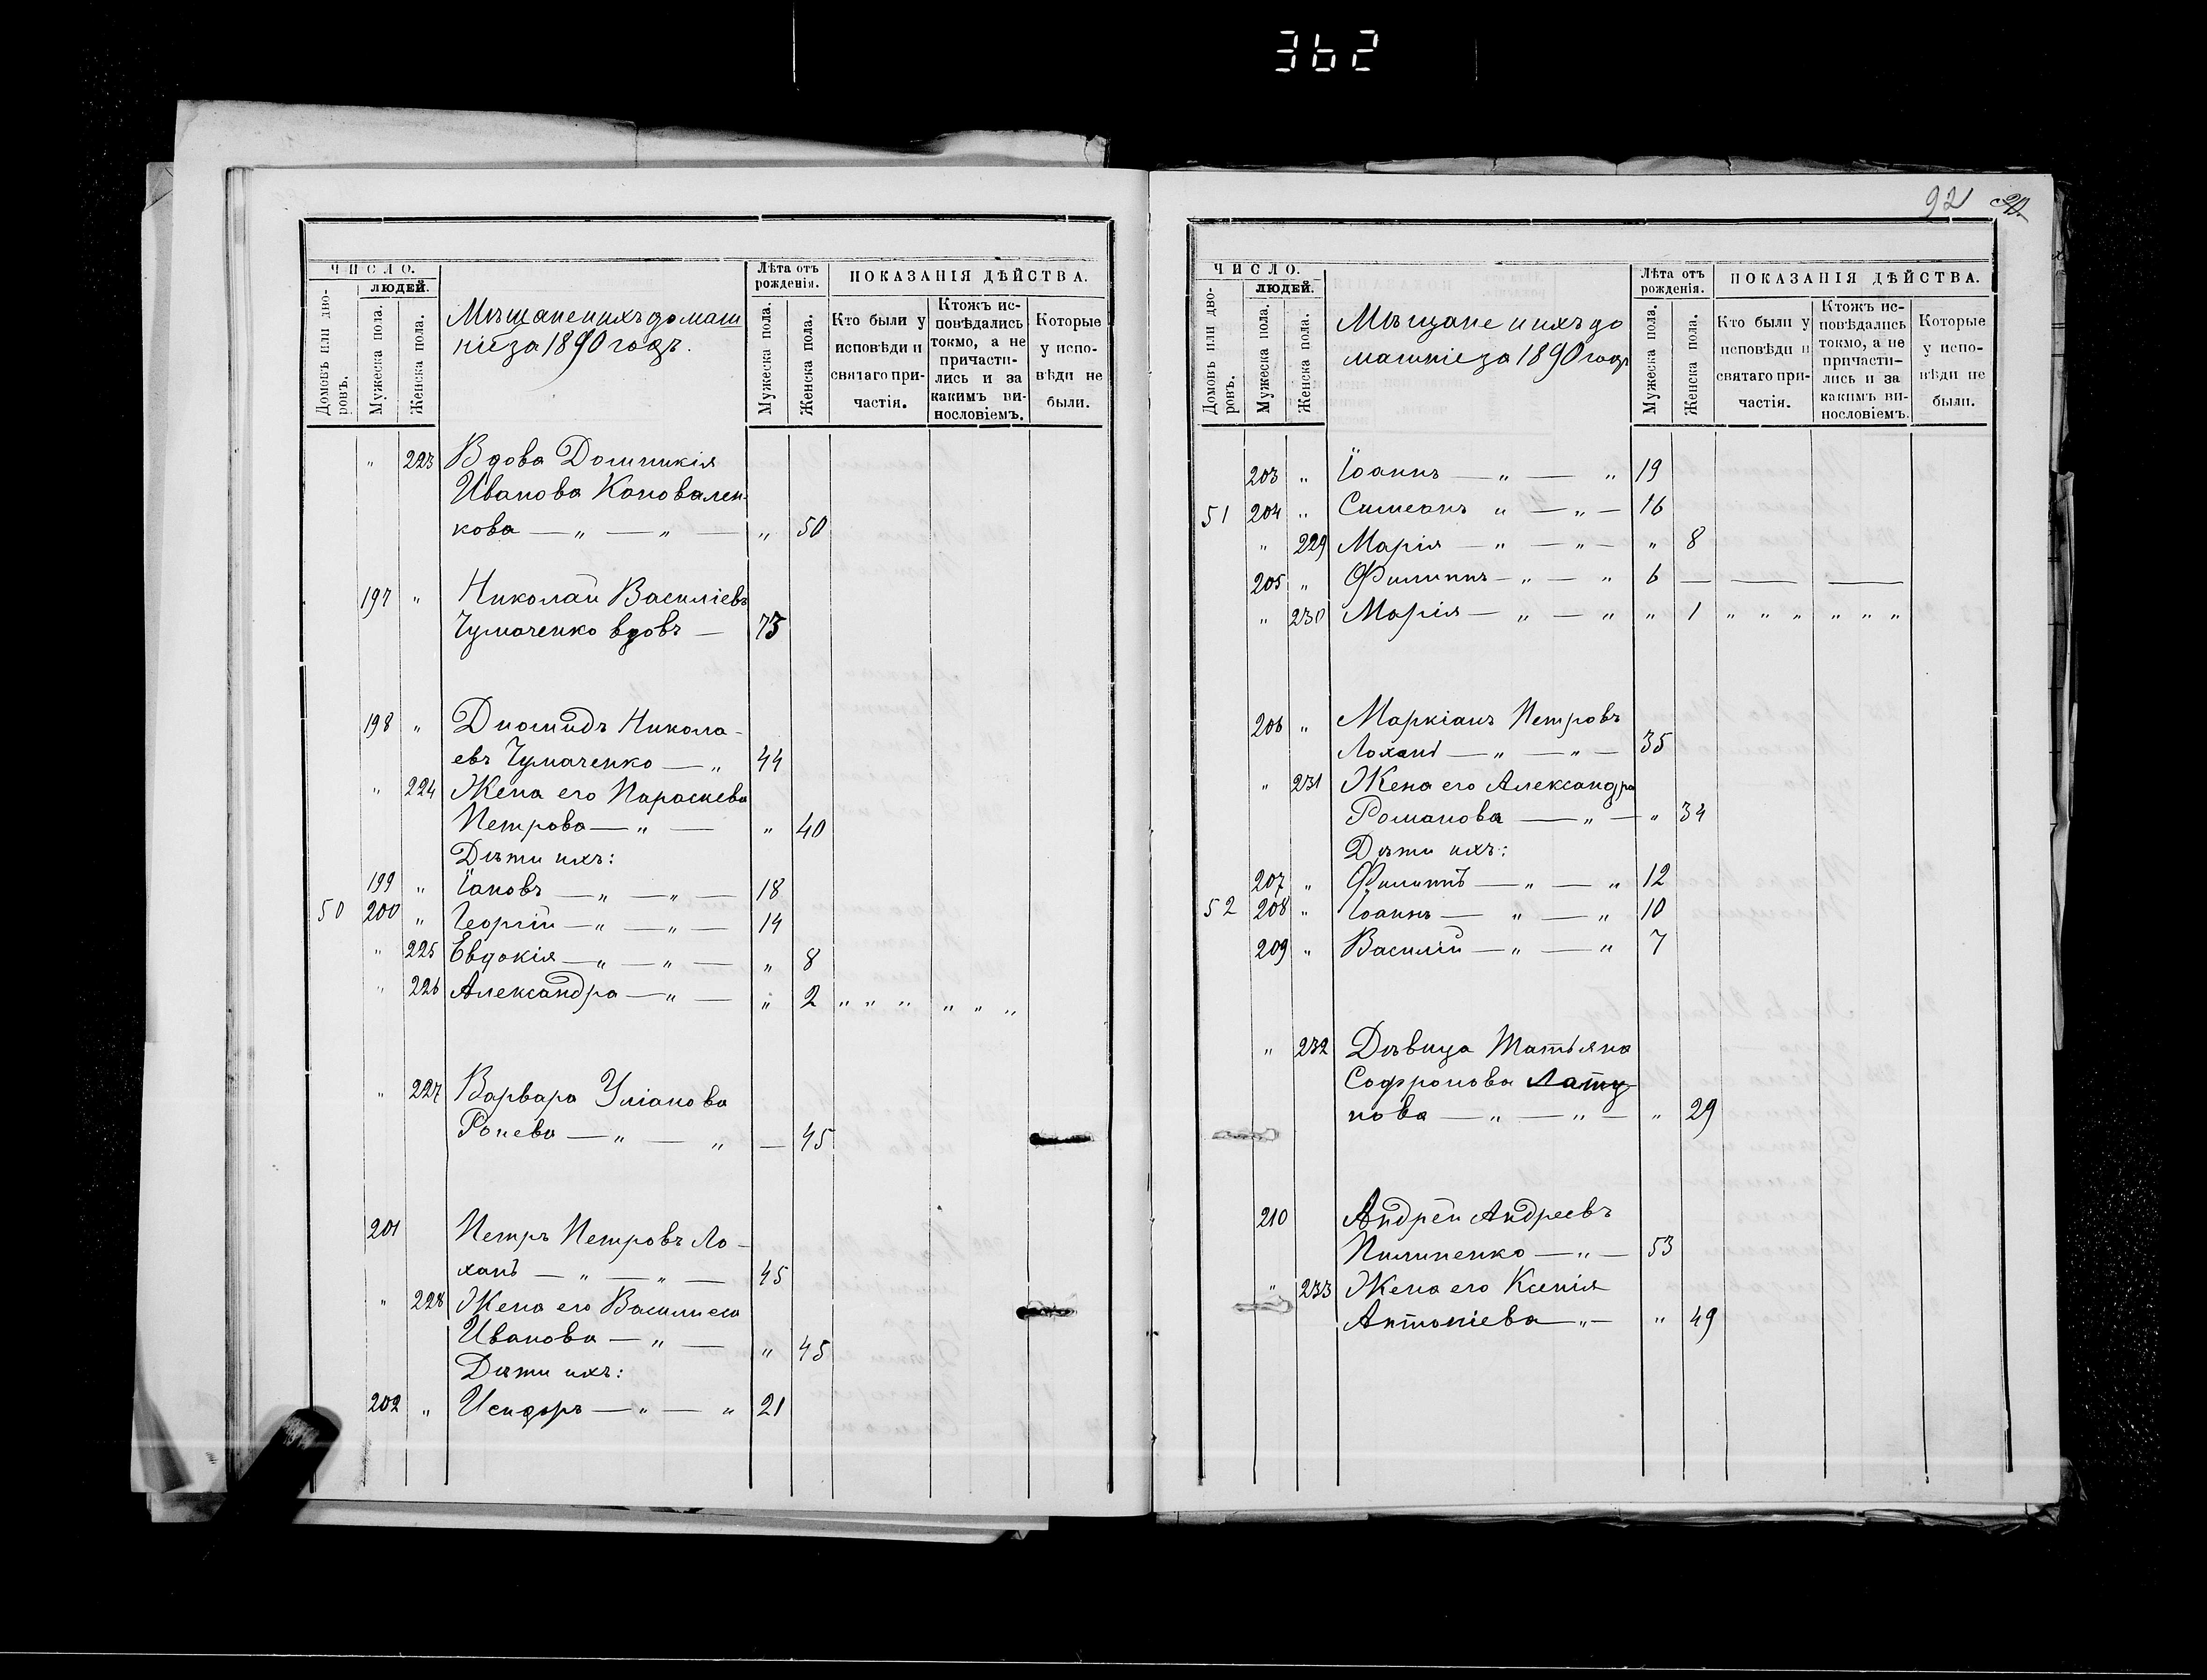 362
92
ЧИСЛО.
ЛЮДЕЙ.
Домовъ или дво-
ровъ.
Мужеска пола.
Женска пола.
Мѣщане и ихъ домаш
ніе за 1890 годъ.
Лѣта отъ
рожденія.
Мужеска пола.
Женска пола.
ПОКАЗАНІЯ ДѢЙСТВА.
Кто были у
исповѣди и
святаго при-
частія.
Ктожъ ис-
повѣдались
токмо, а не
причасти-
лись и за
какимъ ви-
нословіемъ.
Которые
у испо-
вѣди не
были.
„ 223 Вдова Домникія
Иванова Коновален-
кова — „ — „ — „ 50
197 „ Николай Василіевъ
Чумаченко вдовъ — 73
198 „ Диомидъ Никола-
евъ Чумаченко — „ 44
„ 224 Жена его Параскева
Петрова — „ — „ 40
Дѣти ихъ:
199 „ Іаковъ — „ — „ — 18
50 200 „ Георгій — „ — „ — 14
„ 225 Евдокія — „ — „ — „ 8
„ 226 Александра — „ — „ 2 „ „ „ „ „ „
„ 227 Варвара Уліанова
Ронева — „ — „ — 45
201 Петръ Петровъ Ло-
ханъ — „ — „ — 45
„ 228 Жена его Василиса
Иванова — „ — „ 45
Дѣти ихъ:
202 „ Исидоръ — „ — „ 21
ЧИСЛО.
ЛЮДЕЙ.
Домовъ или дво-
ровъ.
Мужеска пола.
Женска пола.
Мѣщане и ихъ до
машніе за 1890 годъ
Лѣта отъ
рожденія.
Мужеска пола.
Женска пола.
ПОКАЗАНІЯ ДѢЙСТВА.
Кто были у
исповѣди и
святаго при-
частія.
Ктожъ ис-
повѣдались
токмо, а не
причасти-
лись и за
какимъ ви-
нословіемъ.
Которые
у испо-
вѣди не
были.
203 „ Іоаннъ — „ — „ 19
51 204 „ Симеонъ „ — „ — 16
„ 229 Марія — „ — „ — „ 8
205 „ Филиппъ — „ — „ 6 — — —
„ 230 Марія — „ — „ „ 1 „ „ „ „ „ „
206 „ Маркіанъ Петровъ
Лоханъ — „ — „ — 35
„ 231 Жена его Александра
Романова — „ — „ 34
Дѣти ихъ:
207 „ Филиппъ — „ — „ 12
52 208 „ Іоаннъ — „ — „ 10
209 „ Василій — „ — „ 7
„ 232 Дѣвица Татіяна
Софронова Лату-
нова — „ — „ — „ 29
210 Андрей Андреевъ
Пилипенко — „ — 53
„ 233 Жена его Ксенія
Антоніева — „ — „ 49